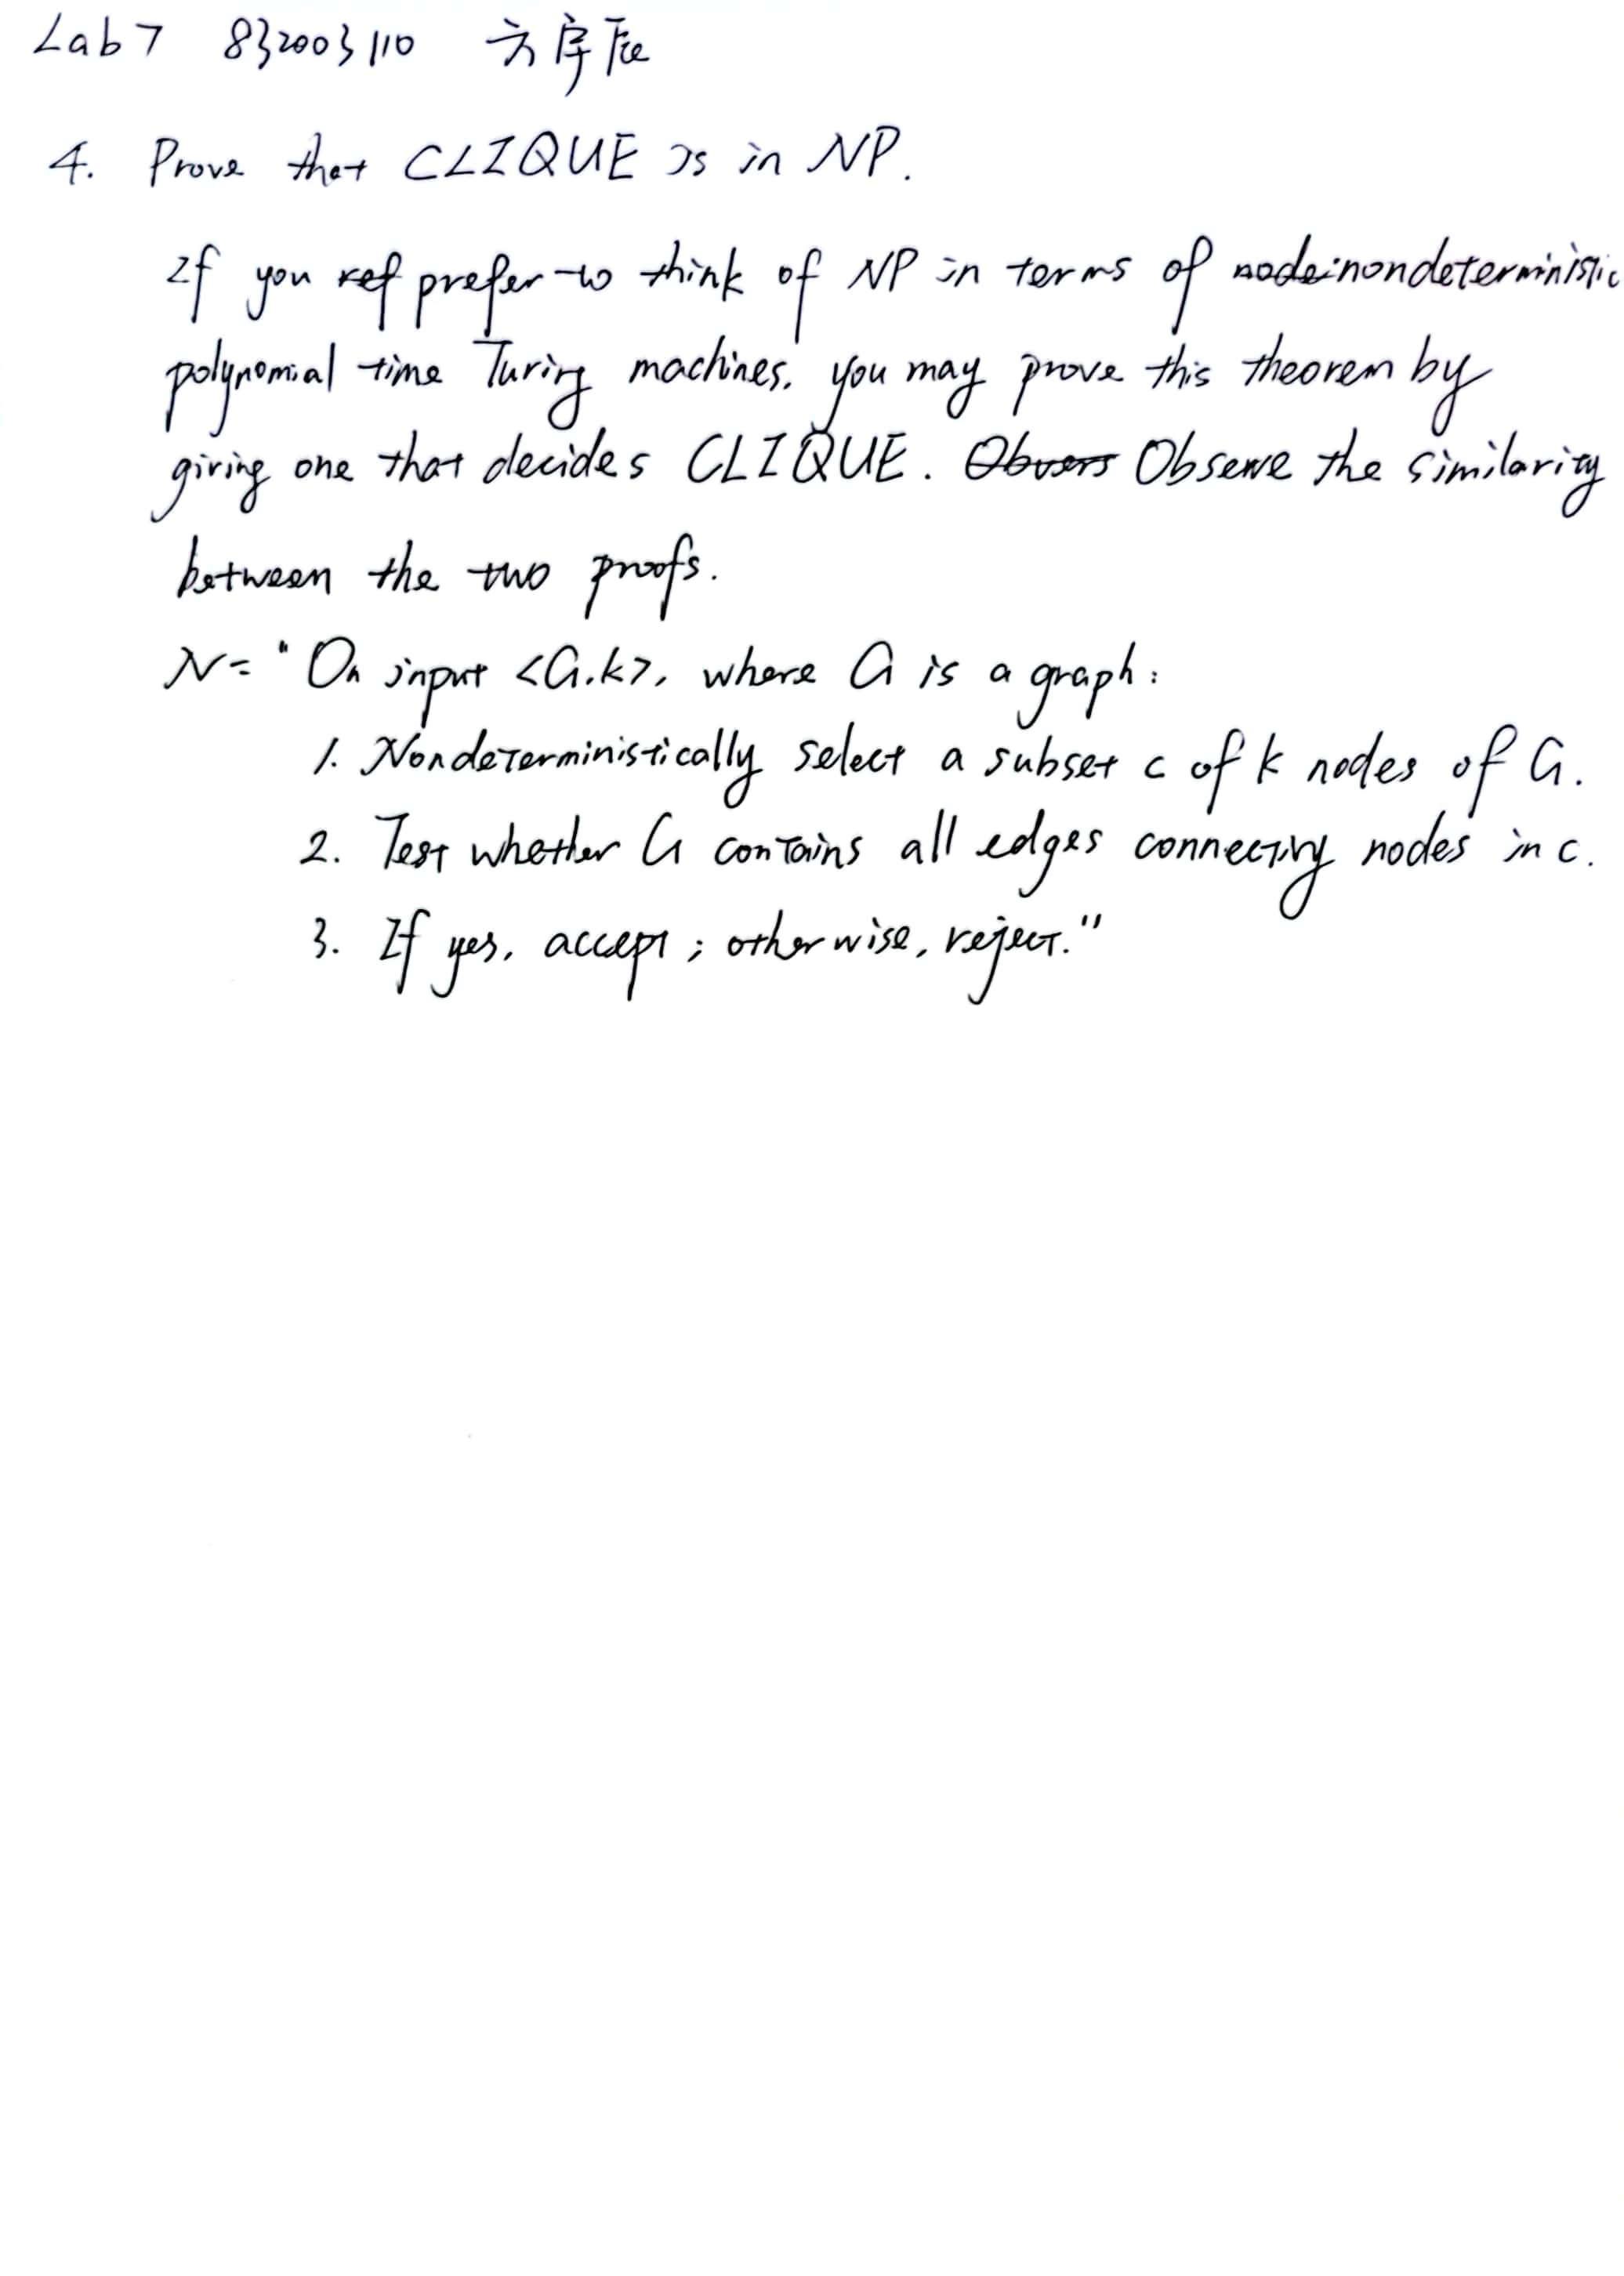 Lab7 832003110 方宇辰
4. Prove that CLIQUE is in NP.
If you ref prefer to think of NP in terms of node nondeterministic
polynomial time Turing machines, you may prove this theorem by
giving one that decides CLIQUE. Obvers Observe the similarity
between the two proofs.
N= "On input <G,k>, where G is a graph:
1. Nondeterministically select a subset c of k nodes of G.
2. Test whether G contains all edges connecting nodes in c.
3. If yes, accept; otherwise, reject."